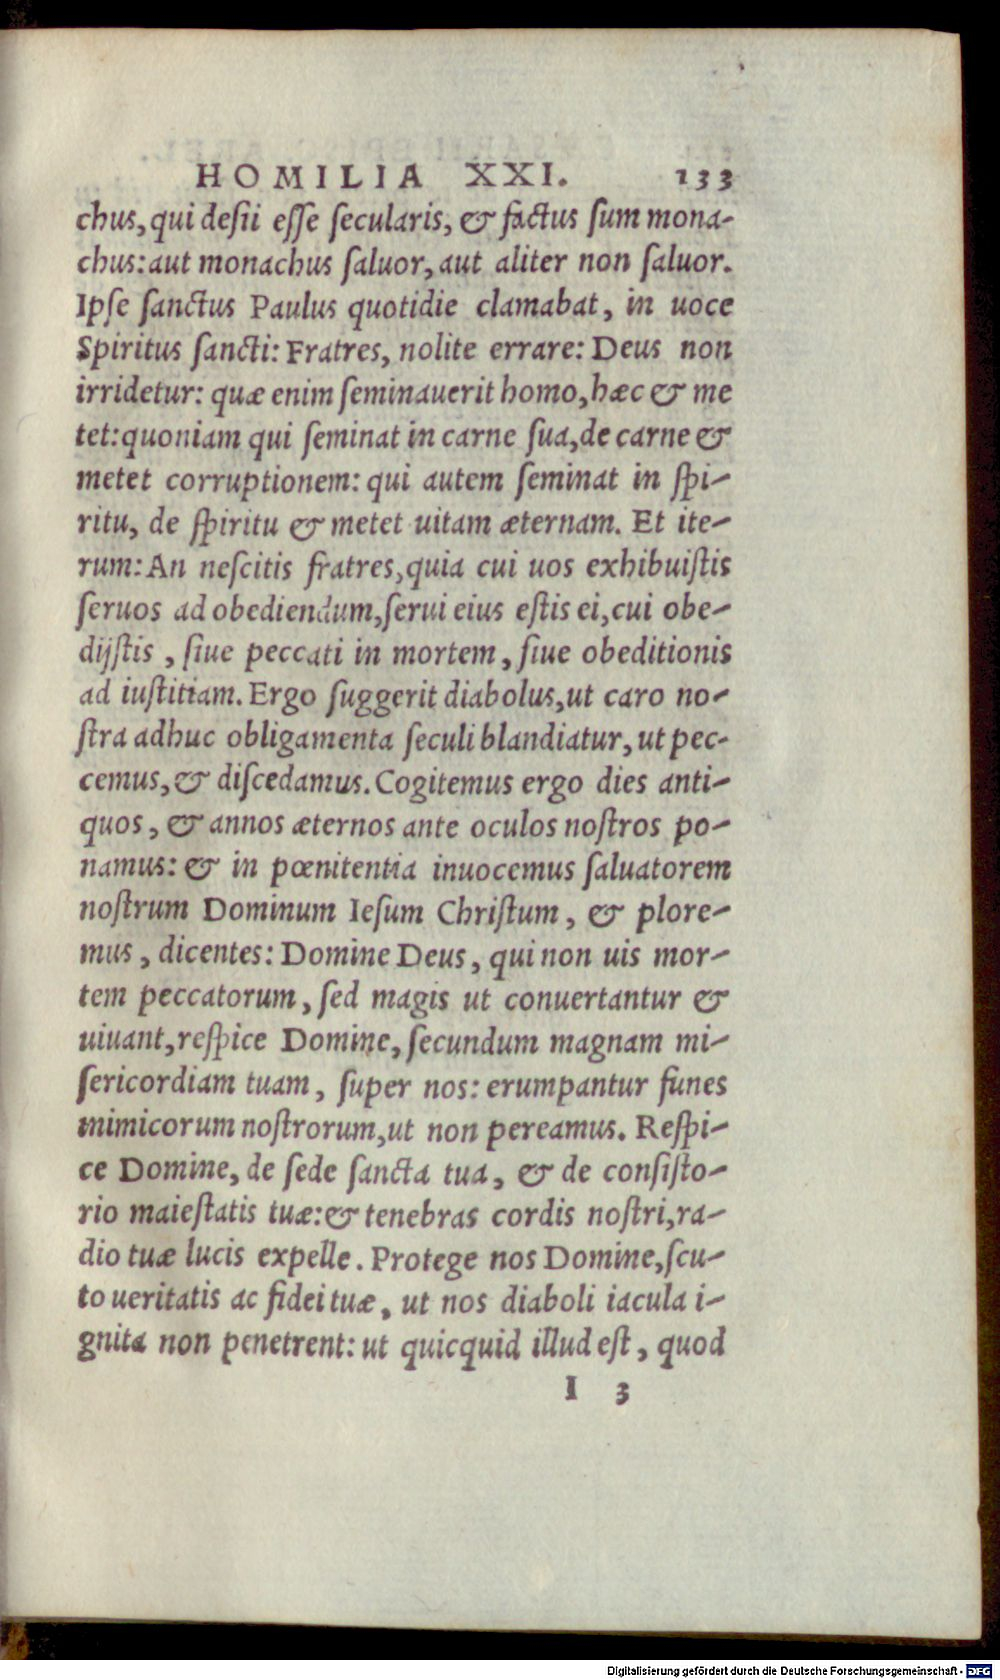 HOMILIA XXI. 133
chus, qui desii esse secularis, & factus sum mona-
chus: aut monachus saluor, aut aliter non saluor.
Ipse sanctus Paulus quotidie clamabat, in uoce
Spiritus sancti: Fratres, nolite errare: Deus non
irridetur: quæ enim seminauerit homo, hæc & me
tet: quoniam qui seminat in carne sua, de carne &
metet corruptionem: qui autem seminat in spi-
ritu, de spiritu & metet uitam æternam. Et ite-
rum: An nescitis fratres, quia cui uos exhibuistis
seruos ad obediendum, serui eius estis ei, cui obe-
dijstis, siue peccati in mortem, siue obeditionis
ad iustitiam. Ergo suggerit diabolus, ut caro no-
stra adhuc obligamenta seculi blandiatur, ut pec-
cemus, & discedamus. Cogitemus ergo dies anti-
quos, & annos æternos ante oculos nostros po-
namus: & in pœnitentia inuocemus saluatorem
nostrum Dominum Iesum Christum, & plore-
mus, dicentes: Domine Deus, qui non uis mor-
tem peccatorum, sed magis ut conuertantur &
uiuant, respice Domine, secundum magnam mi-
sericordiam tuam, super nos: erumpantur funes
inimicorum nostrorum, ut non pereamus. Respi-
ce Domine, de sede sancta tua, & de consisto-
rio maiestatis tuæ: & tenebras cordis nostri, ra-
dio tuæ lucis expelle. Protege nos Domine, scu-
to ueritatis ac fidei tuæ, ut nos diaboli iacula i-
gnita non penetrent: ut quicquid illud est, quod
I 3
Digitalisierung gefördert durch die Deutsche Forschungsgemeinschaft - DFG